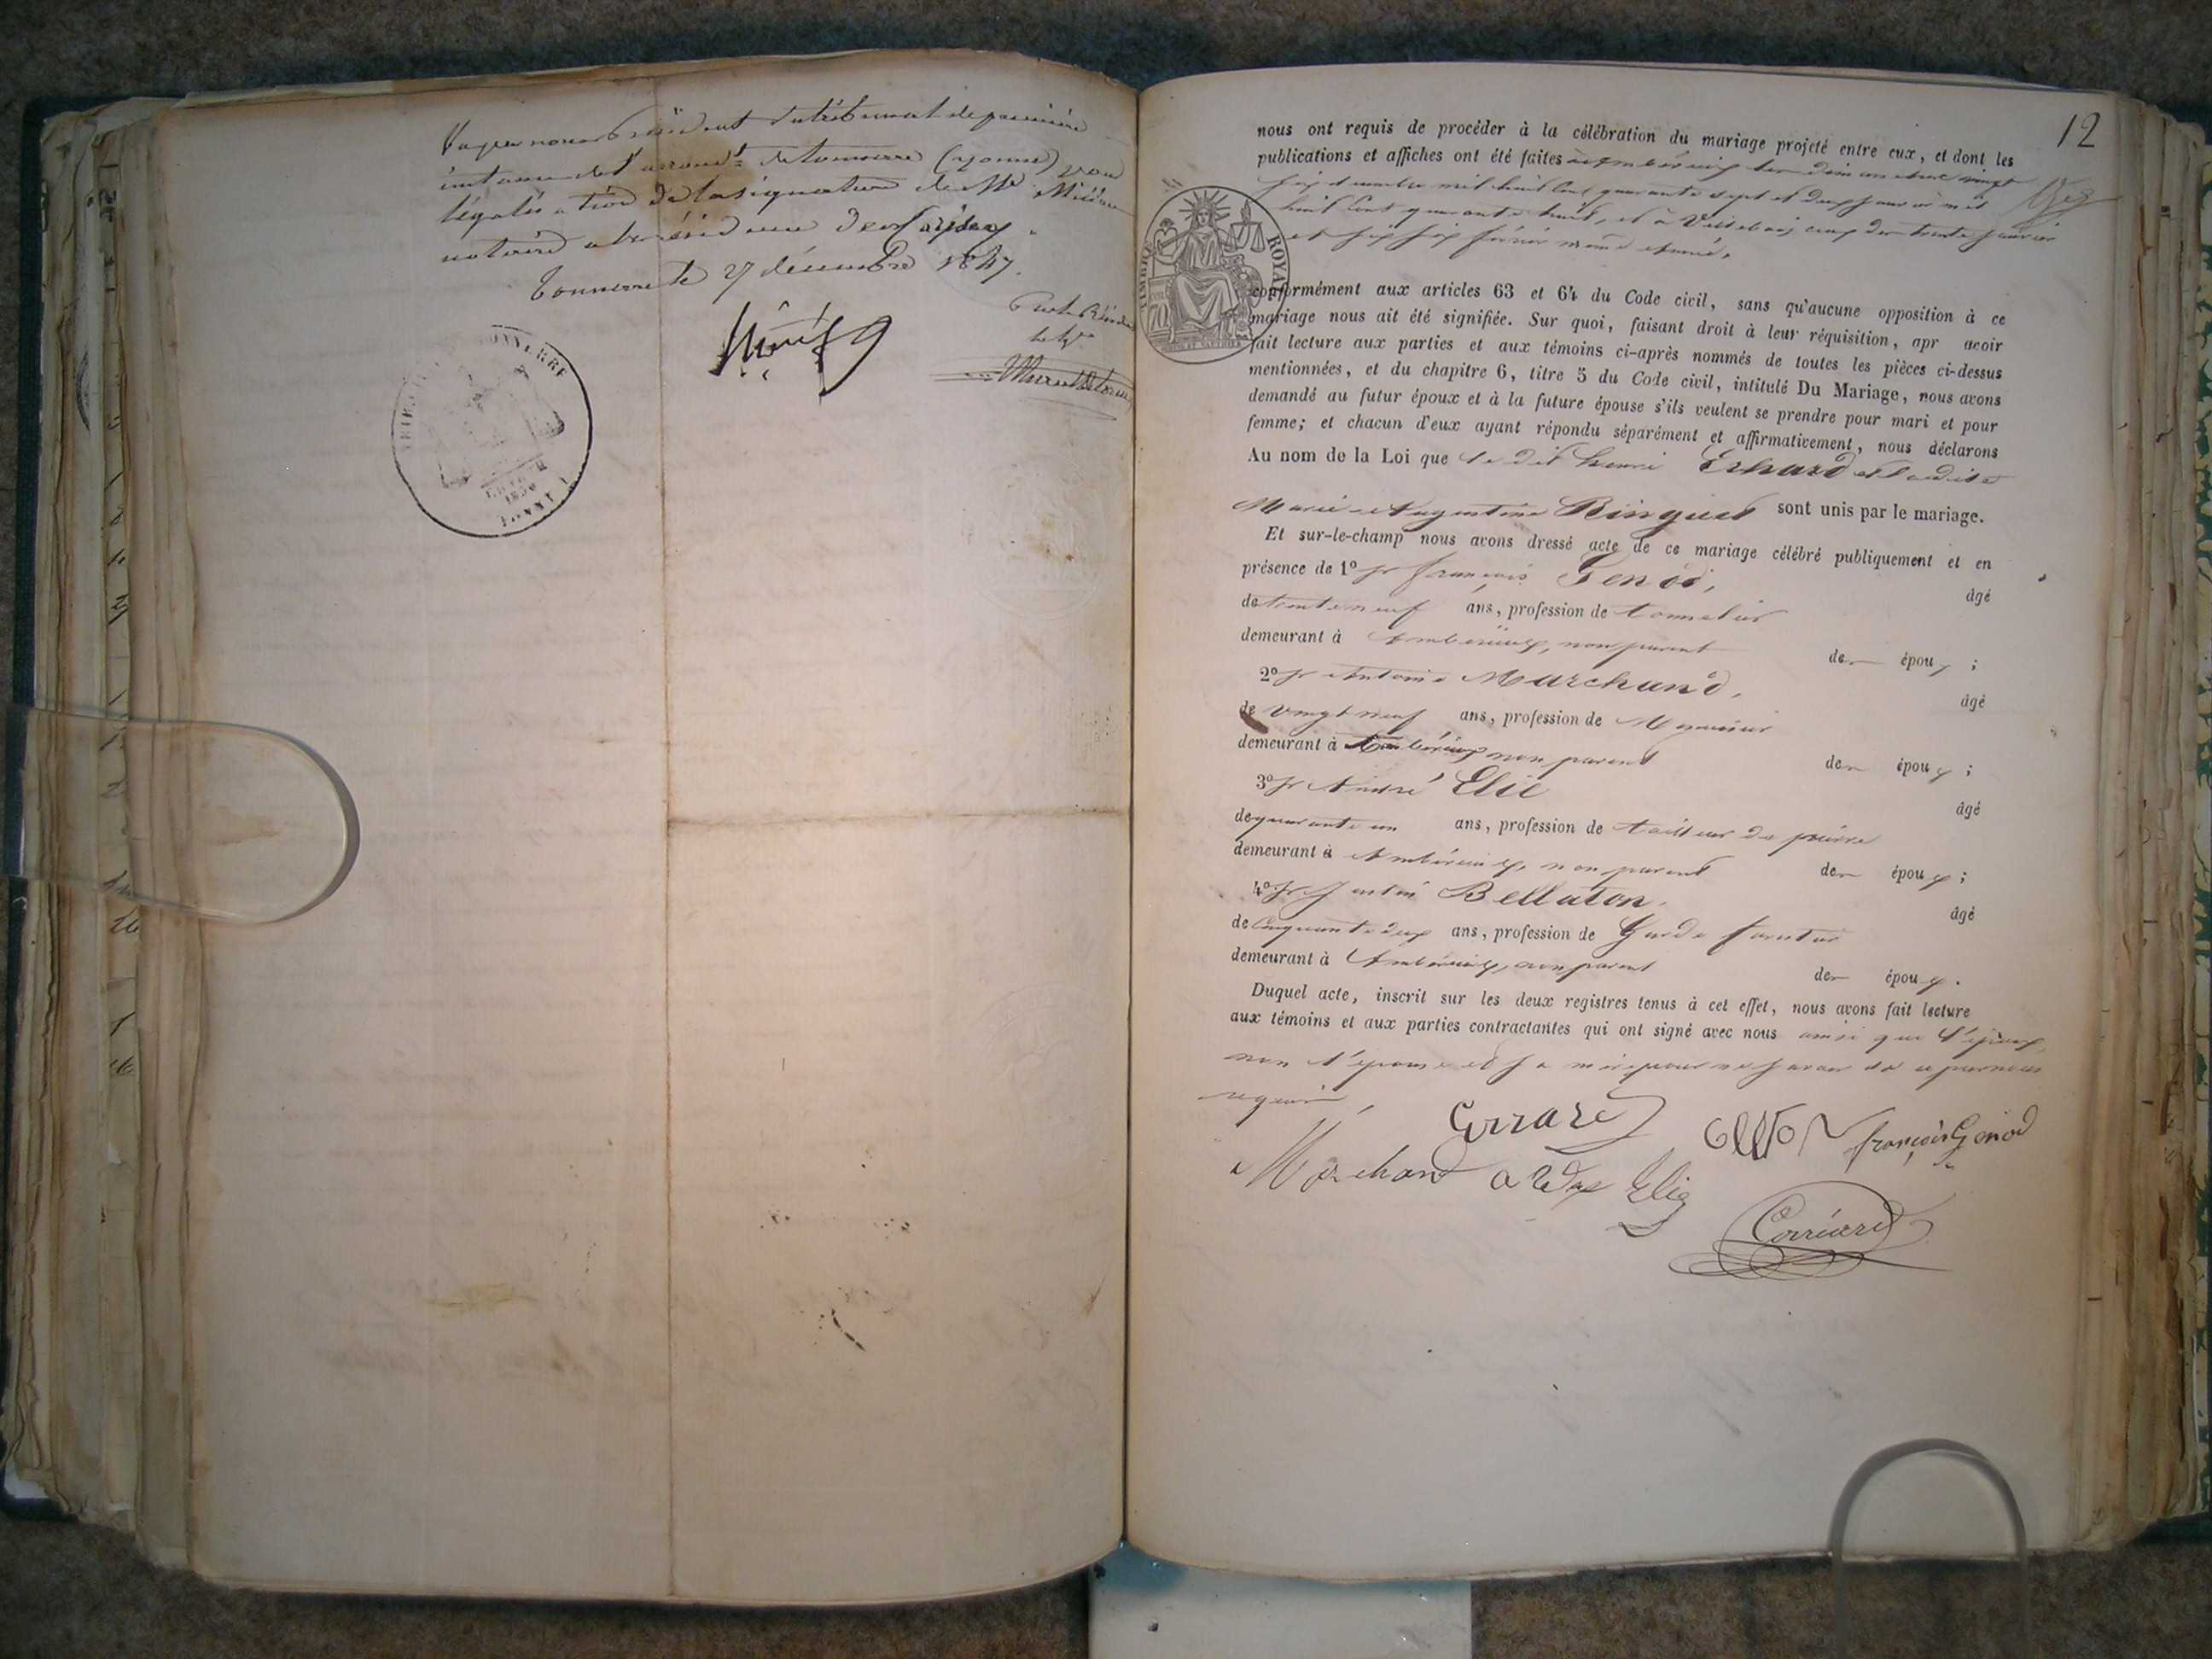 Vu par nous Président du tribunal de première
instance de l'arrond.t de Tonnerre (yonne) pour
légalisation de la signature de Me
notaire à la résidence de
Tonnerre le 27 décembre 1847.
TONNERRE
YONNE
12
nous ont requis de procéder à la célébration du mariage projeté entre eux, et dont les
publications et affiches ont été faites à Ambérieux les dimanches vingt
six décembre mil huit cent quarante sept et deux janvier mil
huit cent quarante huit, et à Villebois les trente janvier
et six février même année,
TIMBRE ROYAL
70
conformément aux articles 63 et 64 du Code civil, sans qu'aucune opposition à ce
mariage nous ait été signifiée. Sur quoi, faisant droit à leur réquisition, apr avoir
fait lecture aux parties et aux témoins ci-après nommés de toutes les pièces ci-dessus
mentionnées, et du chapitre 6, titre 5 du Code civil, intitulé Du Mariage, nous avons
demandé au futur époux et à la future épouse s'ils veulent se prendre pour mari et pour
femme; et chacun d'eux ayant répondu séparément et affirmativement, nous déclarons
Au nom de la Loi que le dit henri Erhard et ladite
Marie Augustine Ringuet sont unis par le mariage.
Et sur-le-champ nous avons dressé acte de ce mariage célébré publiquement et en
présence de 1º Sr françois Genod, âgé
de trente neuf ans, profession de tonnelier
demeurant à Ambérieux, non parent des époux ;
2º Sr Antoine Marchand, âgé
de vingt neuf ans, profession de Menuisier
demeurant à Ambérieux non parent des époux ;
3º Sr André Elie âgé
de quarante un ans, profession de tailleur de pierre
demeurant à Ambérieux, non parent des époux ;
4º Sr Justin Bellaton. âgé
de Cinquante deux ans, profession de Garde forestier
demeurant à Ambérieux, non parent des époux.
Duquel acte, inscrit sur les deux registres tenus à cet effet, nous avons fait lecture
aux témoins et aux parties contractantes qui ont signé avec nous ainsi que l'époux,
non l'épouse et sa mère pour ne savoir de ce par nous
requis,
françois Genod
Marchand Elie
Corréard